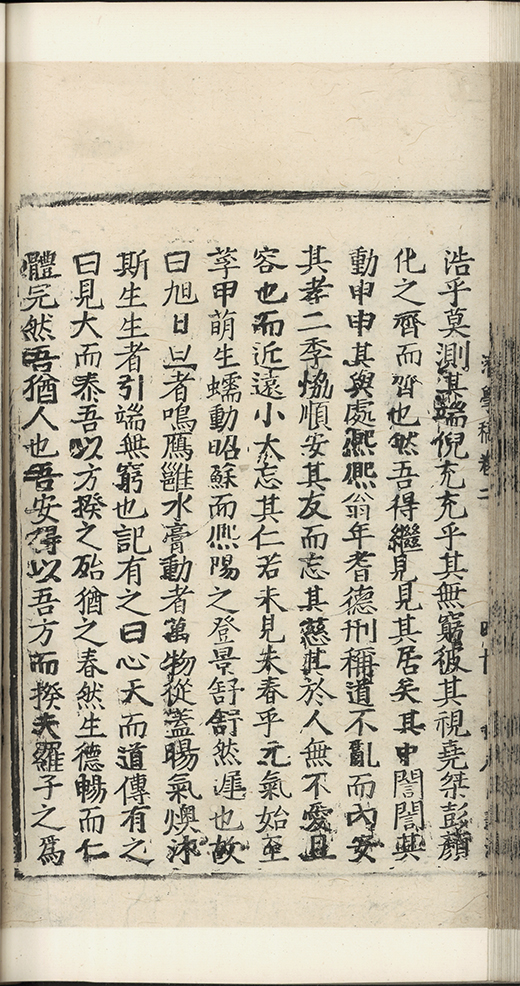 浩乎莫測其端倪充充乎其無窮彼其視堯桀彭顏
化之齊而齊也然吾得繼見見其居矣其中誾誾其
動申申其與處熈熈翁年耆德刑稱道不亂而內安
其孝二季恊順安其友而忘其慈其於人無不愛且
容也而近遠小大忘其仁若未見夫春乎元氣始至
莩甲萌生蠕動昭蘇而熈陽之登景舒舒然遲也故
曰旭日旦者鳴鴈雝水膏動者萬物從蓋暘氣燠沐
斯生生者引端無窮也記有之曰心天而道傳有之
曰見大而泰吾以方揆之殆猶之春然生德暢而仁
體完然吾猶人也吾安得以吾方而揆夫羅子之爲